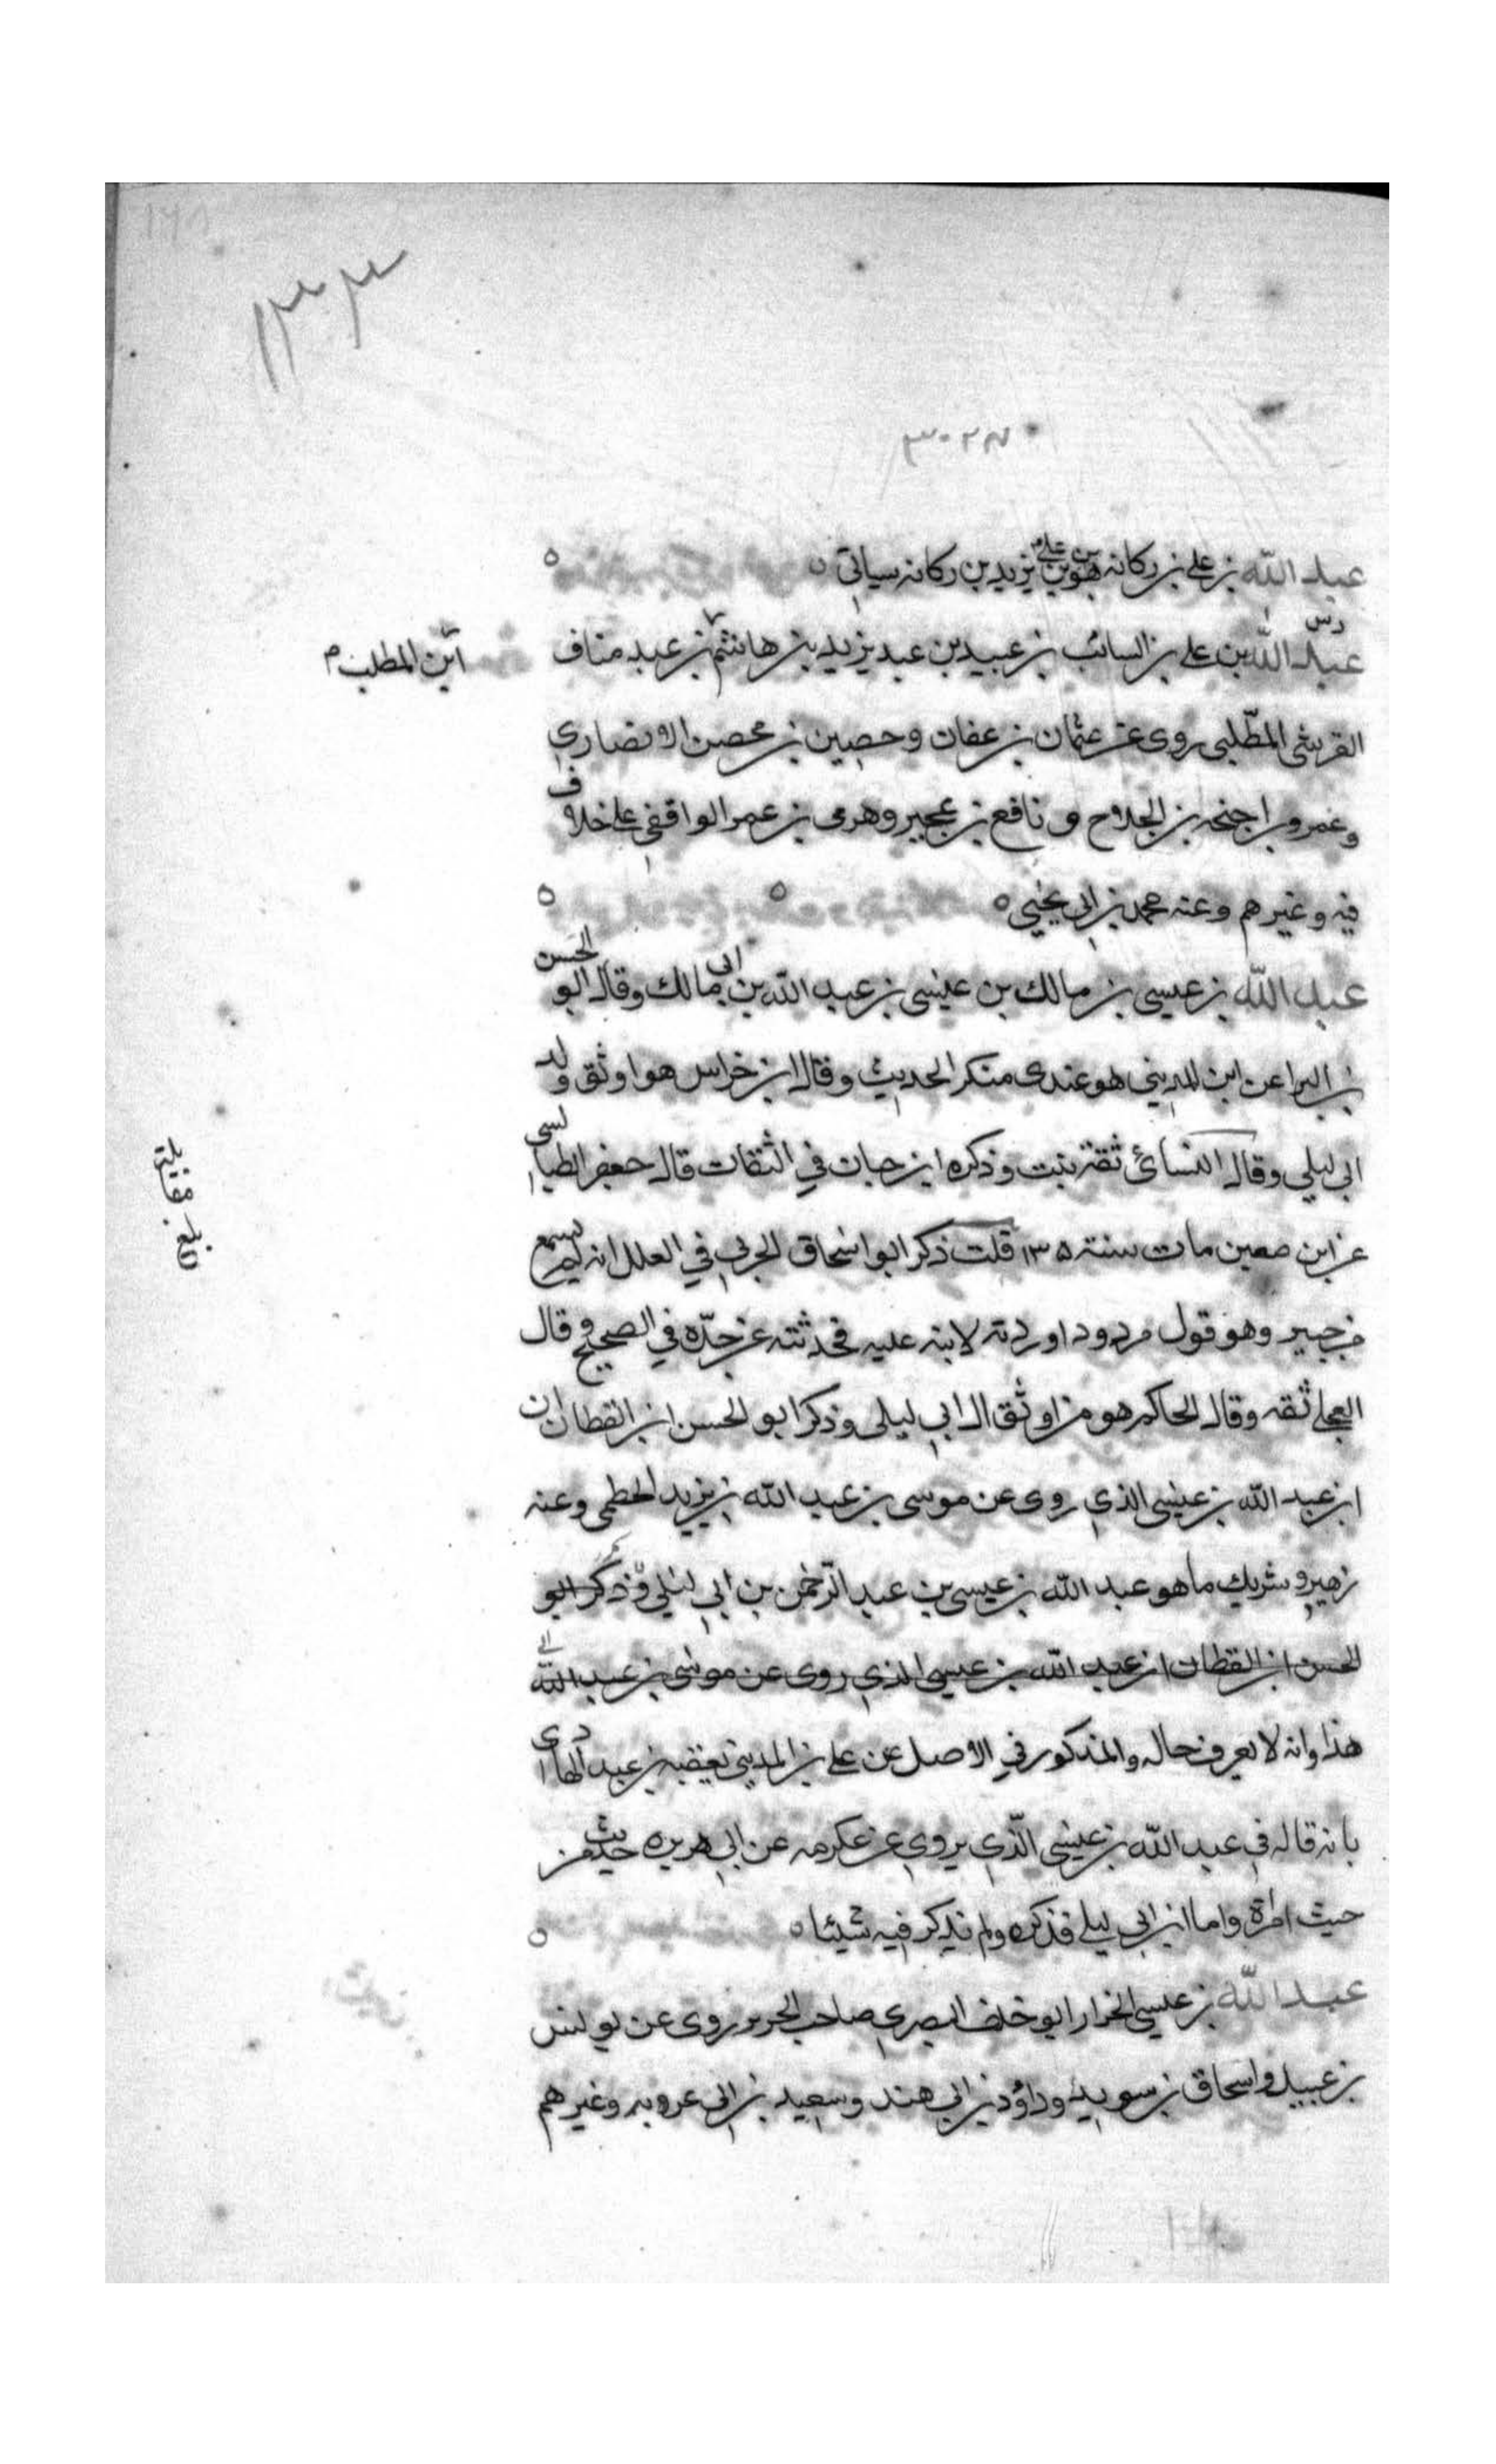 ١٣٣
٣٠٢٨
عبد الله بن علي بن ركانه هو بن علي بن يزيد بن ركانه سياتي
دس
عبد الله بن علي بن السائب بن عبيد بن عبد يزيد بن هاشم بن عبد مناف
ابن المطلب م
القرشي المطّلبي روى عن عثمان بن عفان وحصين بن محصن الانصاري
وعمرو بن اجنحه بن الجلاح و نافع بن عجير وهرمي بن عمر الواقفي على خلاف
فيه وغيرهم وعنه محمد بن ابي يحيى
عبد الله بن عيسى بن مالك بن عيسى بن عبد الله بن ابي مالك وقال ابو الحسن
بن البرا عن ابن المديني هو عندى منكر الحديث وقال ابن خراس هو اوثق ولد
ابي ليلي وقال النسائ ثقة ثبت وذكره ابن حبان في الثقات قال جعفر الطيالسى
عن ابن معين مات سنة ١٣٥ قلت ذكر ابو اسحاق الحربي في العلل انه لم يسمع
من جبير وهو قول مردود اوردته لابنه عليه فحدثته عن جدّه في الصحيح وقال
العجلي ثقه وقال الحاكم هو من اوثق ال ابي ليلى وذكر ابو الحسن ابن القطان ان
ابن عبد الله بن عيسى الذي روى عن موسى بن عبد الله بن يزيد الخطمى وعنه
زهير وشريك ما هو عبد الله بن عيسى بن عبد الرحمن بن ابي ليلي وذكر ابو
الحسن ابن القطان ان عبد الله بن عيسى الذي روى عن موسى بن عبد الله
هذا وانه لا يعرف حاله والمذكور في الاصل عن على بن المديني تعقبه بن عبد الهادى
بانه قاله في عبد الله بن عيسى الّذي يروي عن عكرمه عن ابي هريره حديث من
حيث امراة واما ابن ابي ليلى فذكره ولم يذكر فيه شيئا
عبد الله بن عيسى الخزار ابو خلف البصري صاحب الحرير روى عن يونس
بن عبيد واسحاق بن سويد وداؤد بن ابي هند وسعيد بن ابي عروبه وغيرهم